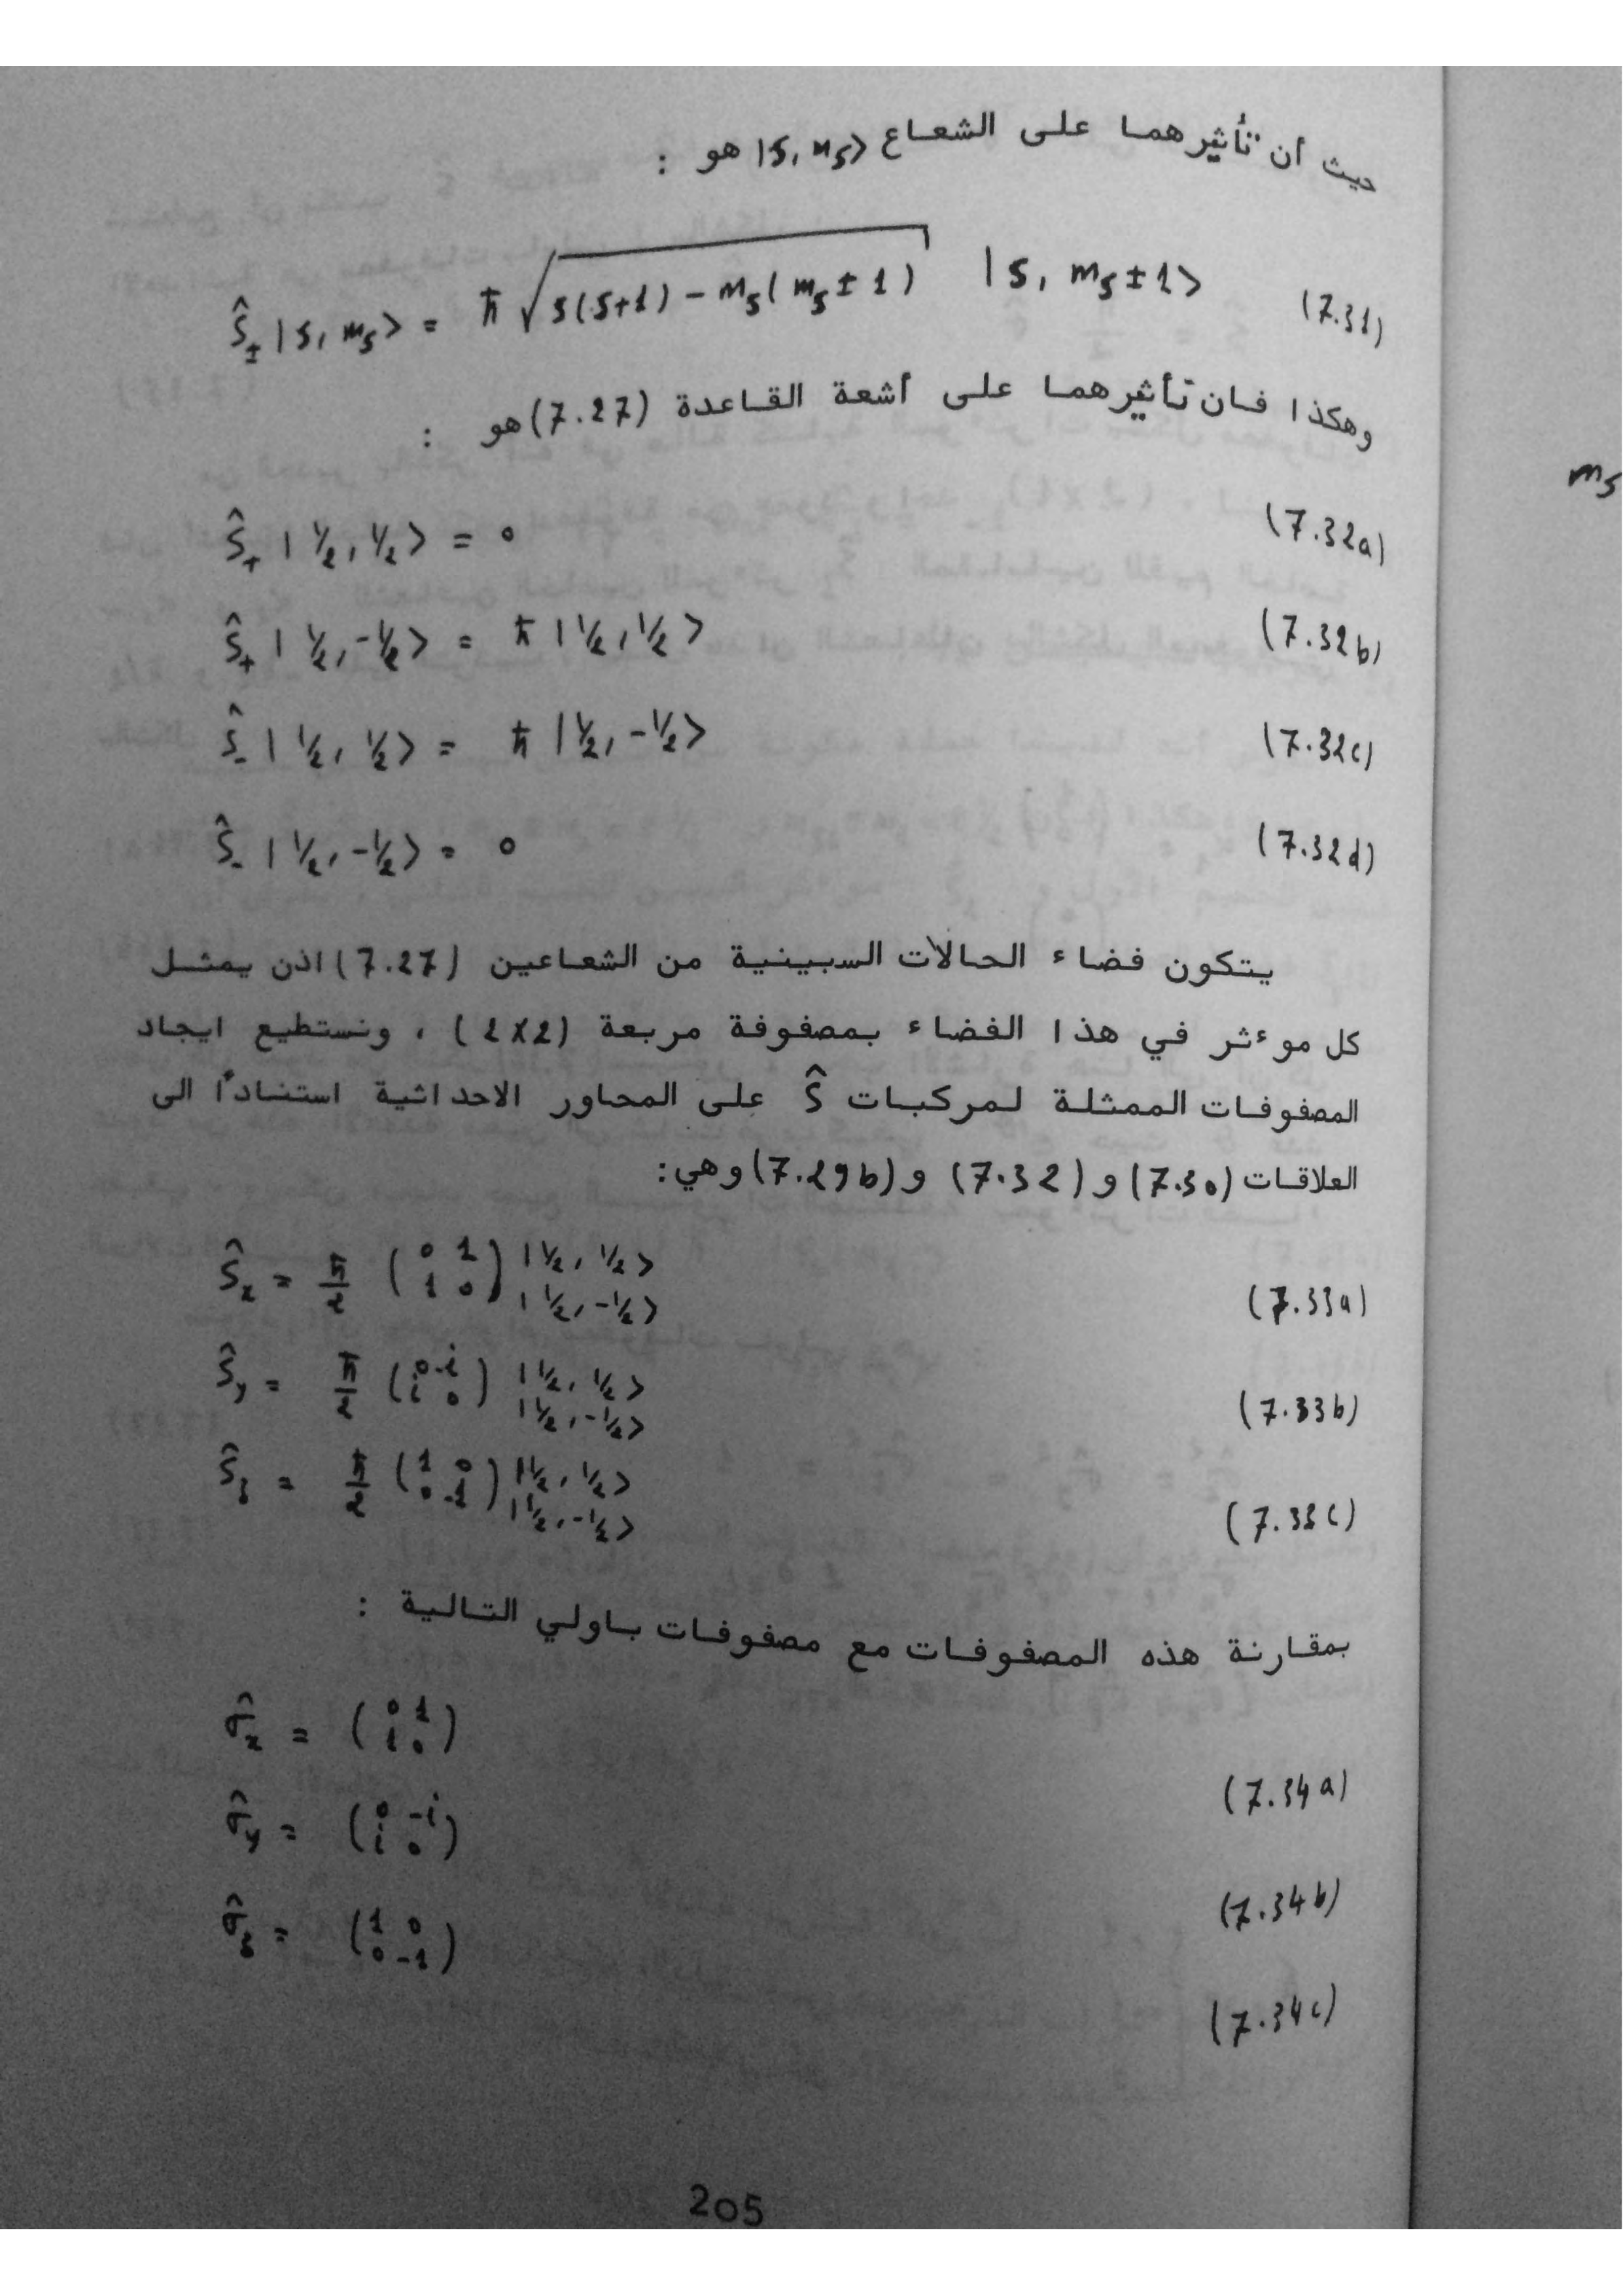 حيث ان تأثيرهما على الشعاع |s, m_s> هو :
Ŝ± |s, m_s> = ħ √(s(s+1) - m_s(m_s ± 1)) |s, m_s ± 1> (7.31)
وهكذا فان تأثيرهما على أشعة القاعدة (7.27) هو :
m_s
Ŝ₊ | 1/2, 1/2 > = 0 (7.32a)
Ŝ₊ | 1/2, -1/2 > = ħ | 1/2, 1/2 > (7.32b)
Ŝ₋ | 1/2, 1/2 > = ħ | 1/2, -1/2 > (7.32c)
Ŝ₋ | 1/2, -1/2 > = 0 (7.32d)
يتكون فضاء الحالات السبينية من الشعاعين (7.27) اذن يمثل
كل موءثر في هذا الفضاء بمصفوفة مربعة (2x2) ، ونستطيع ايجاد
المصفوفات الممثلة لمركبات Ŝ على المحاور الاحداثية استنادًا الى
العلاقات (7.30) و (7.32) و (7.29b) وهي:
Ŝx = ħ/2 (0 1 ; 1 0) |1/2, 1/2> |1/2, -1/2> (7.33a)
Ŝy = ħ/2 (0 -i ; i 0) |1/2, 1/2> |1/2, -1/2> (7.33b)
Ŝz = ħ/2 (1 0 ; 0 -1) |1/2, 1/2> |1/2, -1/2> (7.33c)
بمقارنة هذه المصفوفات مع مصفوفات باولي التالية :
σ̂x = (0 1 ; 1 0) (7.34a)
σ̂y = (0 -i ; i 0) (7.34b)
σ̂z = (1 0 ; 0 -1) (7.34c)
205